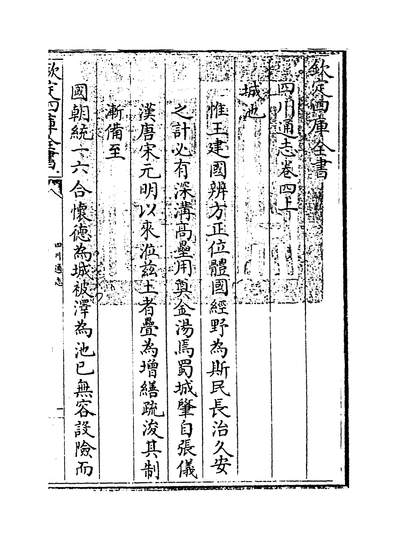 欽定四庫全書
四川通志卷四上
城池
惟王建國辨方正位體國經野為斯民長治久安
之計必有深溝高壘用奠金湯焉蜀城肇自張儀
漢唐宋元明以來涖兹土者疊為增繕疏浚其制
漸備至
國朝統一六合懷德為城被澤為池已無容設險而
欽定四庫全書
四川通志
一